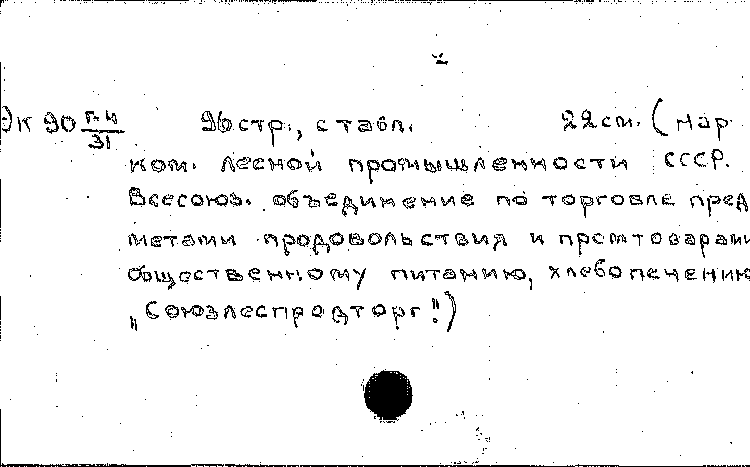 Эк 90 п-н/31 96 стр., с табл. 22 см. (Нар.
ком. лесной промышленности СССР.
Всесоюз. объединение по торговле пред
метами продовольствия и промтоварами
общественному питанию, хлебопечению
„Союзлеспродторг".)